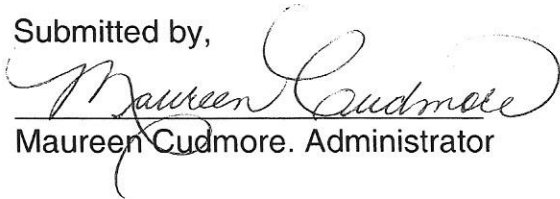 Submitted by,
Maureen Cudmore
Maureen Cudmore. Administrator